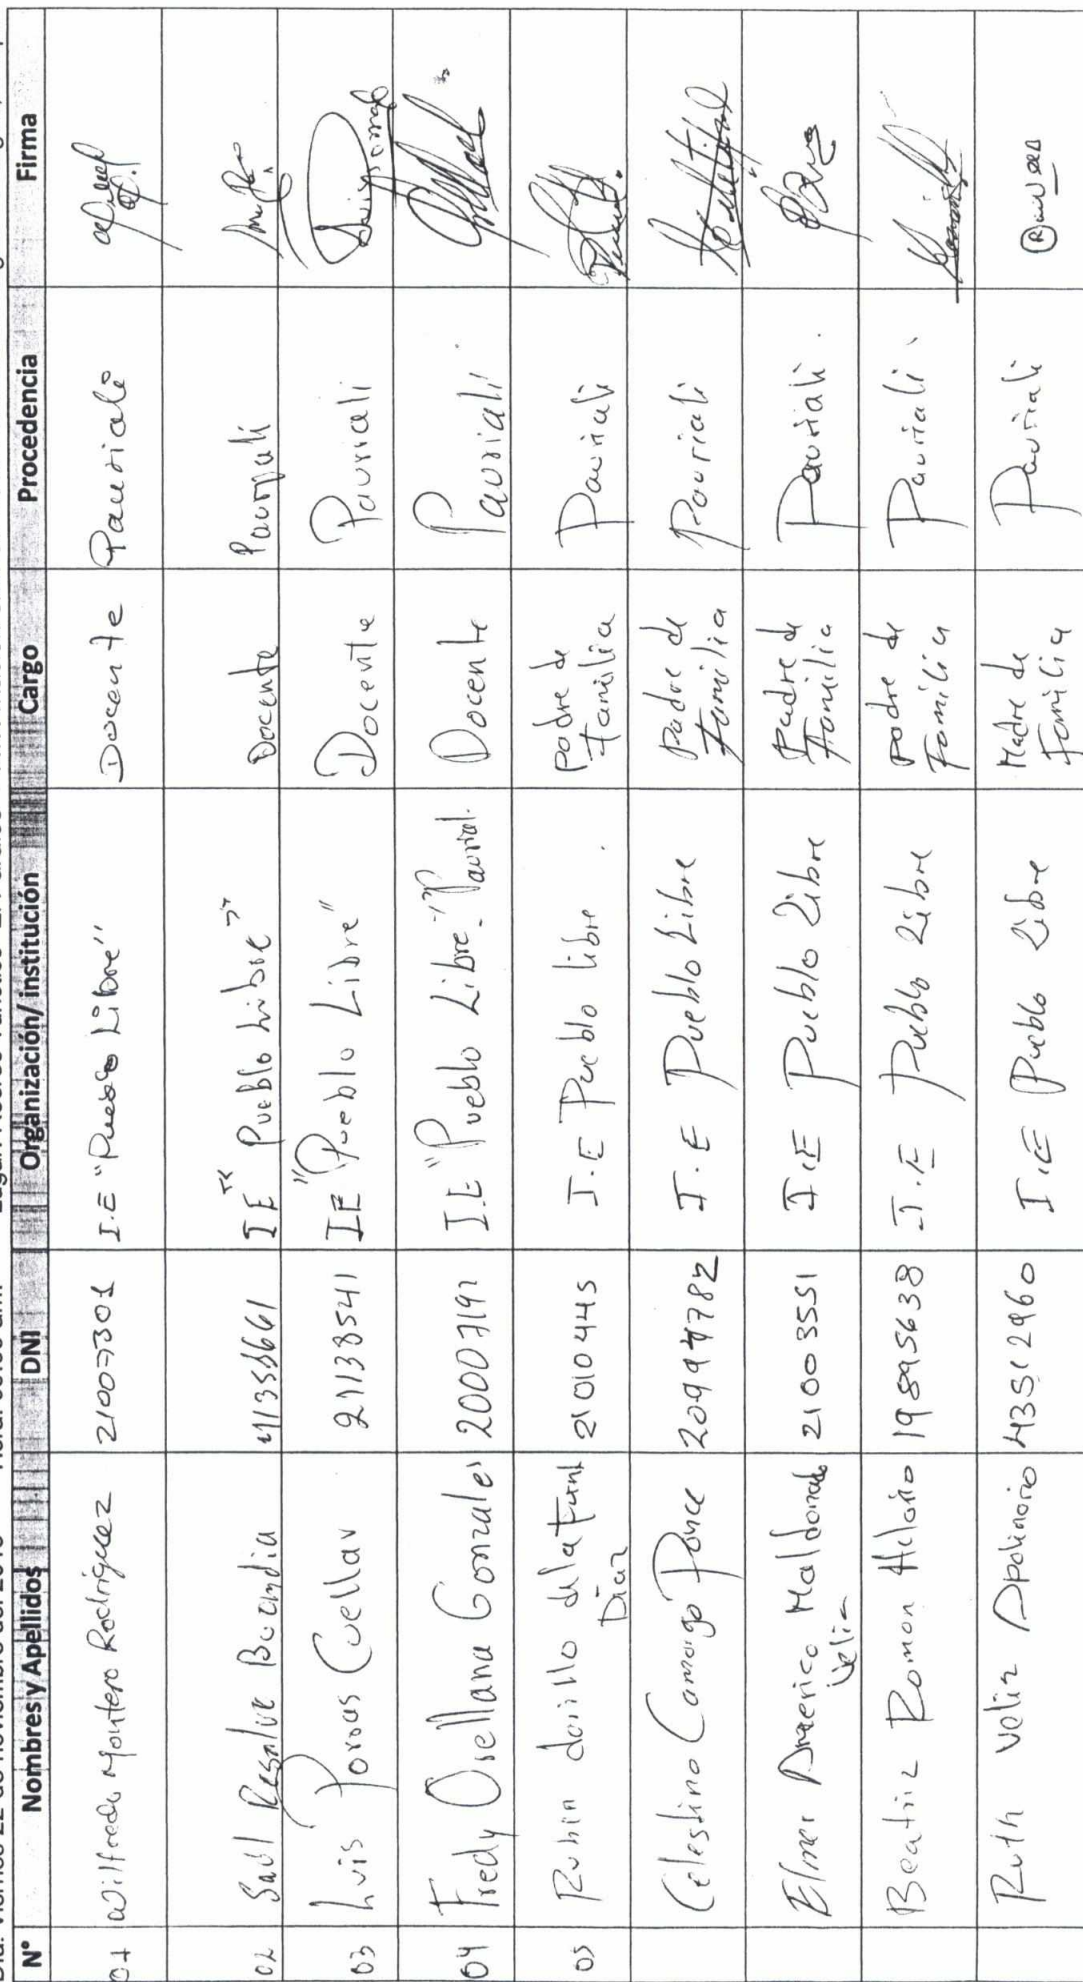 N° Nombres y Apellidos DNI Organización/ institución Cargo Procedencia Firma
01 Wilfredo Montero Rodríguez 21007301 I.E "Pueblo Libre" Docente Pauriali
02 Saúl IE "Pueblo Libre" Docente Pauriali
03 Luis Porras Cuellar 21138541 IE "Pueblo Libre" Docente Pauriali
04 Fredy Orellana Gonzales 20007191 I.E "Pueblo Libre" Paurial. Docente Pauriali
05 Rubin dorillo de la Funt 21010445 I.E Pueblo libre. Padre de Pauriali
Diaz familia
Celestino Camargo Ponce I.E Pueblo Libre Padre de Pauriali
familia
Elmer Americo Maldonado 21003551 I.E Pueblo Libre Padre de Pauriali.
Veliz familia
Beatriz Romon Hilario 19895638 I.E Pueblo Libre padre de Pauriali
Familia
Ruth Veliz Apolinario 43512960 I.E Pueblo Libre Madre de Pauriali
familia